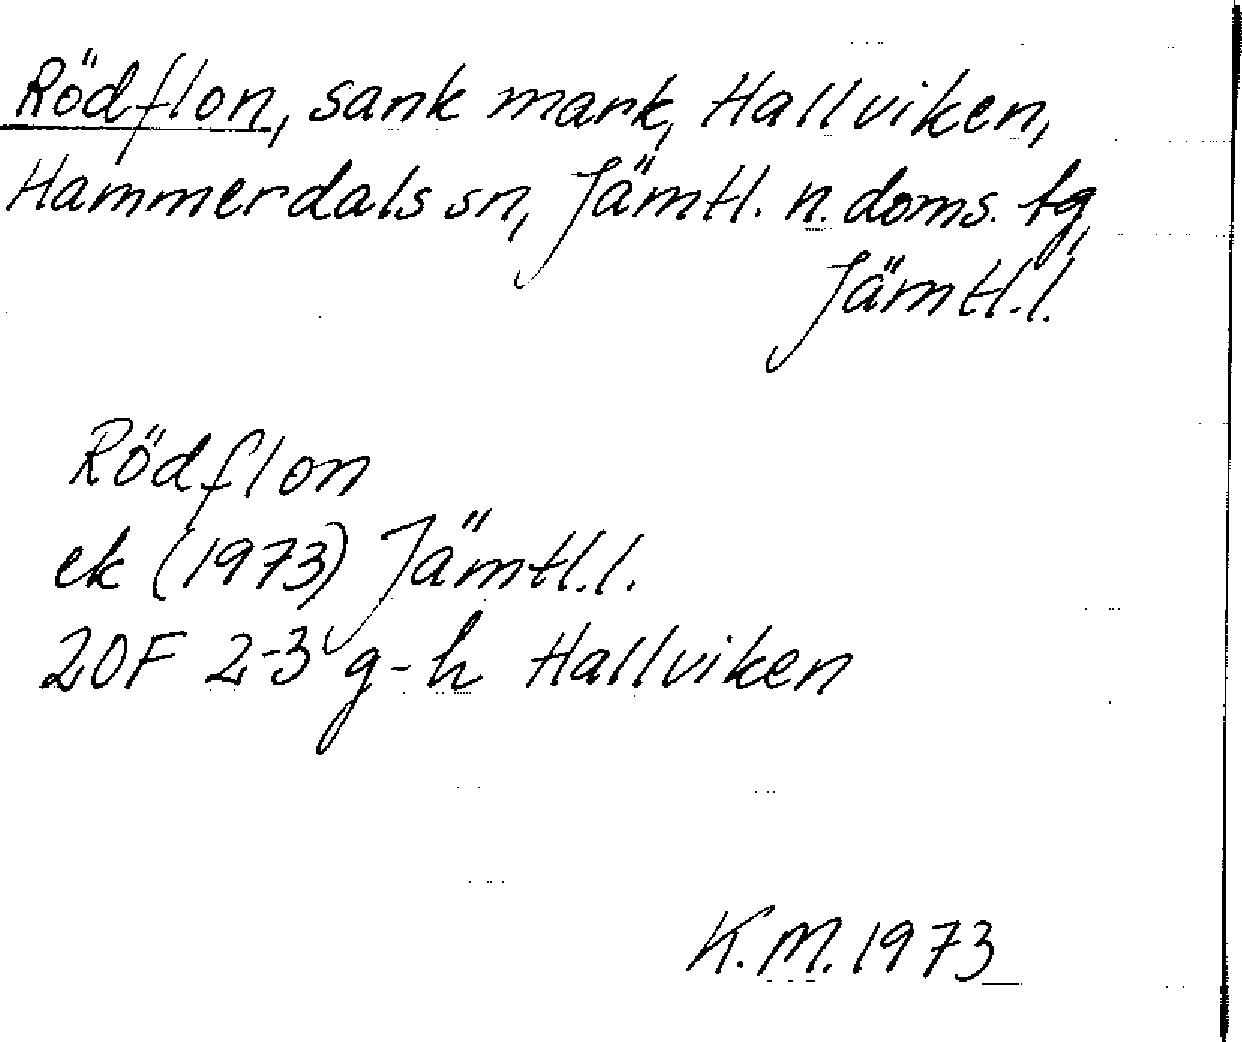 Rödflon, sank mark, Hallviken,
Hammerdals sn, Jämtl. n. doms. tg,
Jämtl.l.
Rödflon
ek (1973) Jämtl.l.
20F 2-3 g-h Hallviken
K.M. 1973